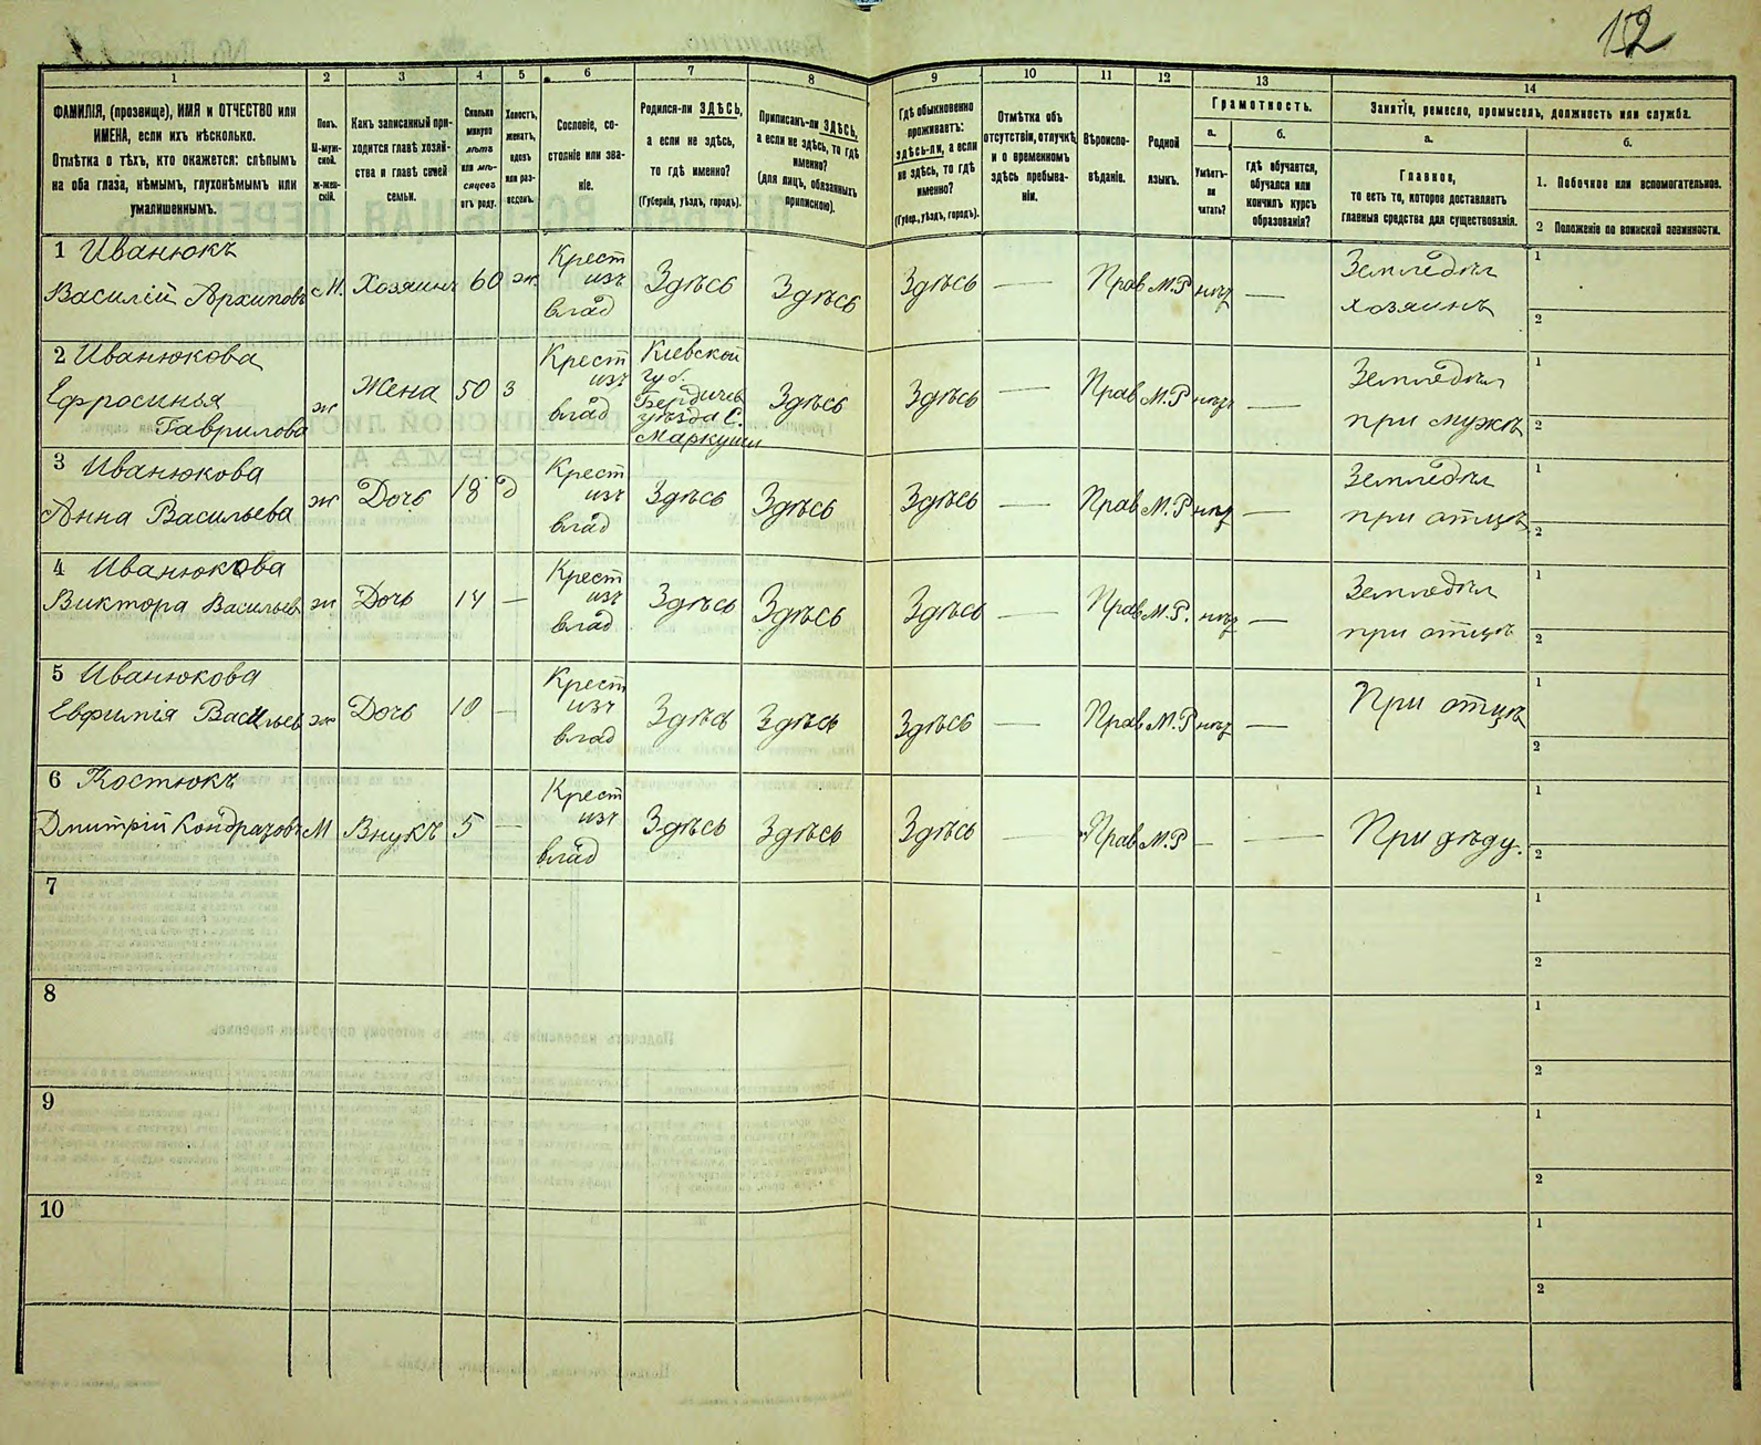 12
1
2
3
4
5
6
7
8
9
10
11
12
13
14
ФАМИЛІЯ, (прозвище), ИМЯ и ОТЧЕСТВО или
ИМЕНА, если ихъ нѣсколько.
Отмѣтка о тѣхъ, кто окажется: слѣпымъ
на оба глаза, нѣмымъ, глухонѣмымъ или
умалишеннымъ.
Полъ.
М-муж-
ской.
Ж-жен-
скій.
Какъ записанный при-
ходится главѣ хозяй-
ства и главѣ своей
семьи.
Сколько
минуло
лѣтъ
или мѣ-
сяцевъ
отъ роду.
Холостъ,
женатъ,
вдовъ
или раз-
веденъ.
Сословіе, со-
стояніе или зва-
ніе.
Родился-ли ЗДѢСЬ,
а если не здѣсь,
то гдѣ именно?
(Губернія, уѣздъ, городъ).
Приписанъ-ли ЗДѢСЬ,
а если не здѣсь, то гдѣ
именно?
(для лицъ, обязанныхъ
припискою).
Гдѣ обыкновенно
проживаетъ:
здѣсь-ли, а если
не здѣсь, то гдѣ
именно?
(Губер., уѣздъ, городъ).
Отмѣтка объ
отсутствіи, отлучкѣ
и о временномъ
здѣсь пребыва-
ніи.
Вѣроиспо-
вѣданіе.
Родной
языкъ.
Грамотность.
а.
Умѣетъ-
ли
читать?
б.
Гдѣ обучается,
обучался или
кончилъ курсъ
образованія?
Занятіе, ремесло, промыселъ, должность или служба.
а.
Главное,
то есть то, которое доставляетъ
главныя средства для существованія.
б.
1. Побочное или вспомогательное.
2 Положеніе по воинской повинности.
1 Иванюкъ
Василій Архиповъ М. Хозяинъ 60 ж. Крест изъ влад Здѣсь Здѣсь Здѣсь — Прав М.Р нѣт — Земледѣл хозяинъ 1 2
2 Иванюкова
Ефросинья
Гаврилова ж Жена 50 з Крест изъ влад Кіевской губ. Бердичев уѣзда С. Маркуши Здѣсь Здѣсь — Прав М.Р нѣт — Земледѣл при мужѣ 1 2
3 Иванюкова
Анна Васильева ж Дочь 18 д Крест изъ влад Здѣсь Здѣсь Здѣсь — Прав М.Р нѣт — Земледѣл при отцѣ 1 2
4 Иванюкова
Виктора Васильев ж Дочь 14 — Крест изъ влад Здѣсь Здѣсь Здѣсь — Прав М.Р. нѣт — Земледѣл при отцѣ 1 2
5 Иванюкова
Евфимія Васильев ж Дочь 10 — Крест изъ влад Здѣсь Здѣсь Здѣсь — Прав М.Р нѣт — При отцѣ 1 2
6 Костюкъ
Дмитрій Кондратовъ М Внукъ 5 — Крест изъ влад Здѣсь Здѣсь Здѣсь — Прав М.Р — — При дѣду. 1 2
7 1 2
8 1 2
9 1 2
10 1 2